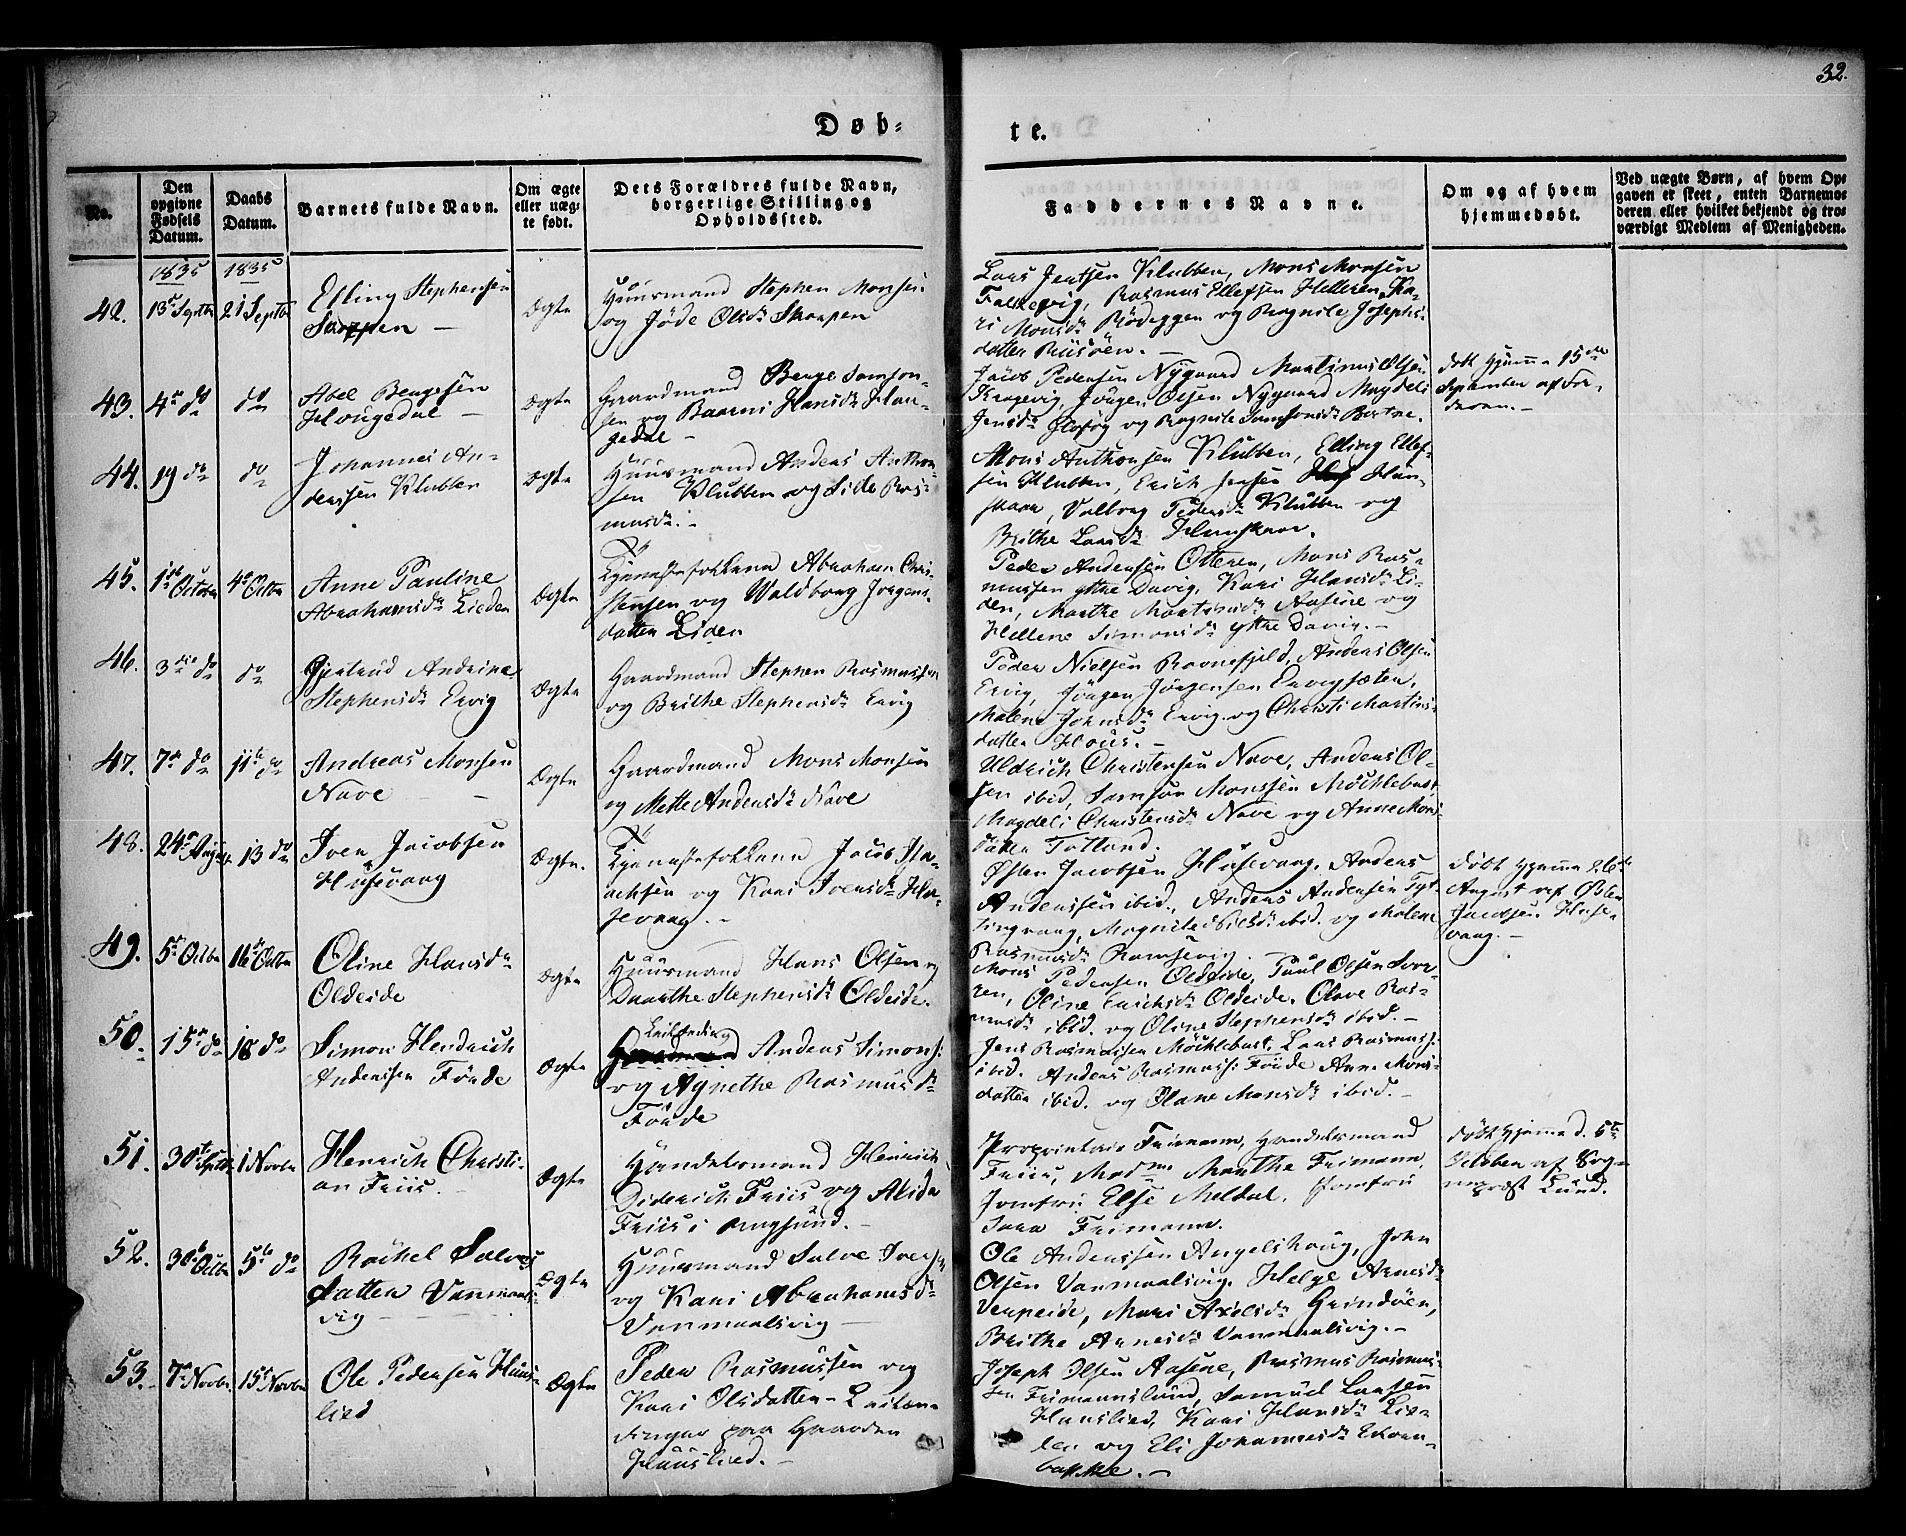 32.
Døb-
te.
No.
Den
opgivne
Fødsels
Datum.
Daabs
Datum.
Barnets fulde Navn.
Om ægte
eller uæg-
te født.
Dets Forældres fulde Navn,
borgerlige Stilling og
Opholdssted.
Faddernes Navne.
Om og af hvem
hjemmedøbt.
Ved uægte Børn, af hvem Op-
gaven er skeet, enten Barnemo-
deren eller hvilket bekjendt og tro-
værdigt Medlem af Menigheden.
1835
1835
42.
13de Septbr
21 Septbr
Elling Stephensen
Skorpen
Ægte
Huusmand Stephen Monsen
og Jøde Olsdr Skorpen
Lars Jentsen Klubben, Mons Monsen
Falkevig, Rasmus Ellefsen Helleren, Ka-
ri Monsdr Rødeggen og Rognile Josephs-
datter Riisøen.
43.
4de do
do
Abel Bergesen
Hougedal
Ægte
Gaardmand Berge Samson-
sen og Baarni Hansdr Hou-
gedal
Jacob Pedersen Nygaard Martinus Olsen
Krogevig, Jørgen Olsen Nygaard Magdeli
Jensdr og Rognile Samsonsdr
døbt hjemme 15de
September af Fa-
deren.
44.
19 do
do
Johannes An-
derssen Klubben
Ægte
Huusmand Anders Anthon-
sen Klubben og Side Ras-
musdr.
Mons Anthonsen Klubben, Elling Ellef-
sen Klubben, Erich Jensen Hun-
skaar, Valborg Pedersdr Klubben og
Brithe Larsdr Hunskaar.
45.
1ste Octobr
4de Octbr
Anne Pauline
Abrahamsdr Lieden
Ægte
Tjenestefolkene Abraham Chri-
stensen og Waldborg Jørgens-
datter Liden
Peder Andersen Otteren, Mons Ras-
mussen ytre Davig, Kari Hansdr Li-
den, Marthe Mortensdr Aasene og
Hellene Simonsdr ytre Davig.
46.
3die do
do
Gjertrud Andrine
Stephensdr Ervig
Ægte
Gaardmand Stephen Rasmussen
og Brithe Stephensdr Ervig
Peder Nielsen Ravnefjeld, Anders Olsen
Ervig, Jørgen Jørgensen Ervigsæter,
Malene Johnsdr Ervig og Christi Martins-
datter Hous.
47.
7de do
11te do
Andreas Monsen
Nave
Ægte
Gaardmand Mons Monsen
og Mette Andersdr Nave
Uldrich Christensen Nave, Anders Ol-
sen ibid, Samson Monsen Möcklebust,
Magdeli Christensdr Nave og Anne Mons-
datter Totland.
48.
24de August
13 do
Iver Jacobsen
Husevaag
Ægte.
Tjenestefolkene Jacob Isa-
achsen og Kari Iversdr Hu-
sevaag.
Østen Jacobsen Husevaag, Anders
Anderssen ibid., Anders Andersen Tyt-
tingvaag, Magnile Nilsdr ibid. og Malene
Rasmusdr
døbt hjemme
August af Østen
Jacobsen Huse-
vaag.
49.
5te Octbr
16de Octbr
Oline Hansdr
Oldeide
Ægte
Huusmand Hans Olsen og
Daarthe Stephensdr Oldeide.
Mons Pedersen Oldeide, Paul Olsen
Oline Erichsdr Oldeide, Olave Ras-
musdr ibid. og Oline Stephensdr ibid.
50.
15de do
18 do
Simon Hendrich
Anderssen Förde
Ægte
Leilænding
Anders Simons:
og Agnethe Rasmusdr
Förde
Jens Rasmussen Möcklebust, Lars Rasmuss:
ibid. Anders Rasmuss: Förde Anne Mons-
datter ibid. og Olane Monsdr ibid.
51.
30te Septbr
1 Novbr
Henrich Christi-
an Friis.
Ægte
Handelsmand Heinrich
Diderich Friis og Alida
Friis i Rugsund.
Proprietair Friimann, Handelsmand
Friis, Madme Marthe Frimann,
Jomfru Else Meldal, Jomfru
Sara Frimann.
døbt hjemme d. 5te
October af Sog-
nepræst Lund.
52.
30te Octbr
5te do
Rachel Salves
datter Vanmaals-
vig
Ægte
Huusmand Salve Iversen
og Kari Abrahamsdr
Vanmaalsvig
Ole Anderssen Angelshaug, John
Olsen Vanmaalsvig, Helge Arnesdr
Verpeide, Mari Axelsdr Grindøen,
Brithe Arnesdr Vanmaalsvig.
53.
7de Novbr
15de Novbr
Ole Pedersen Huus-
lied
Ægte
Peder Rasmussen og
Kari Olsdatter Leilæn-
dinger paa Gaarden
Huuslied.
Joseph Olsen Aasene, Rasmus Rasmus-
sen Frimannslund, Samuel Larsen
Huuslied, Kari Hansdr Lie-
den og Eli Johannesdr Ekren-
bakke.